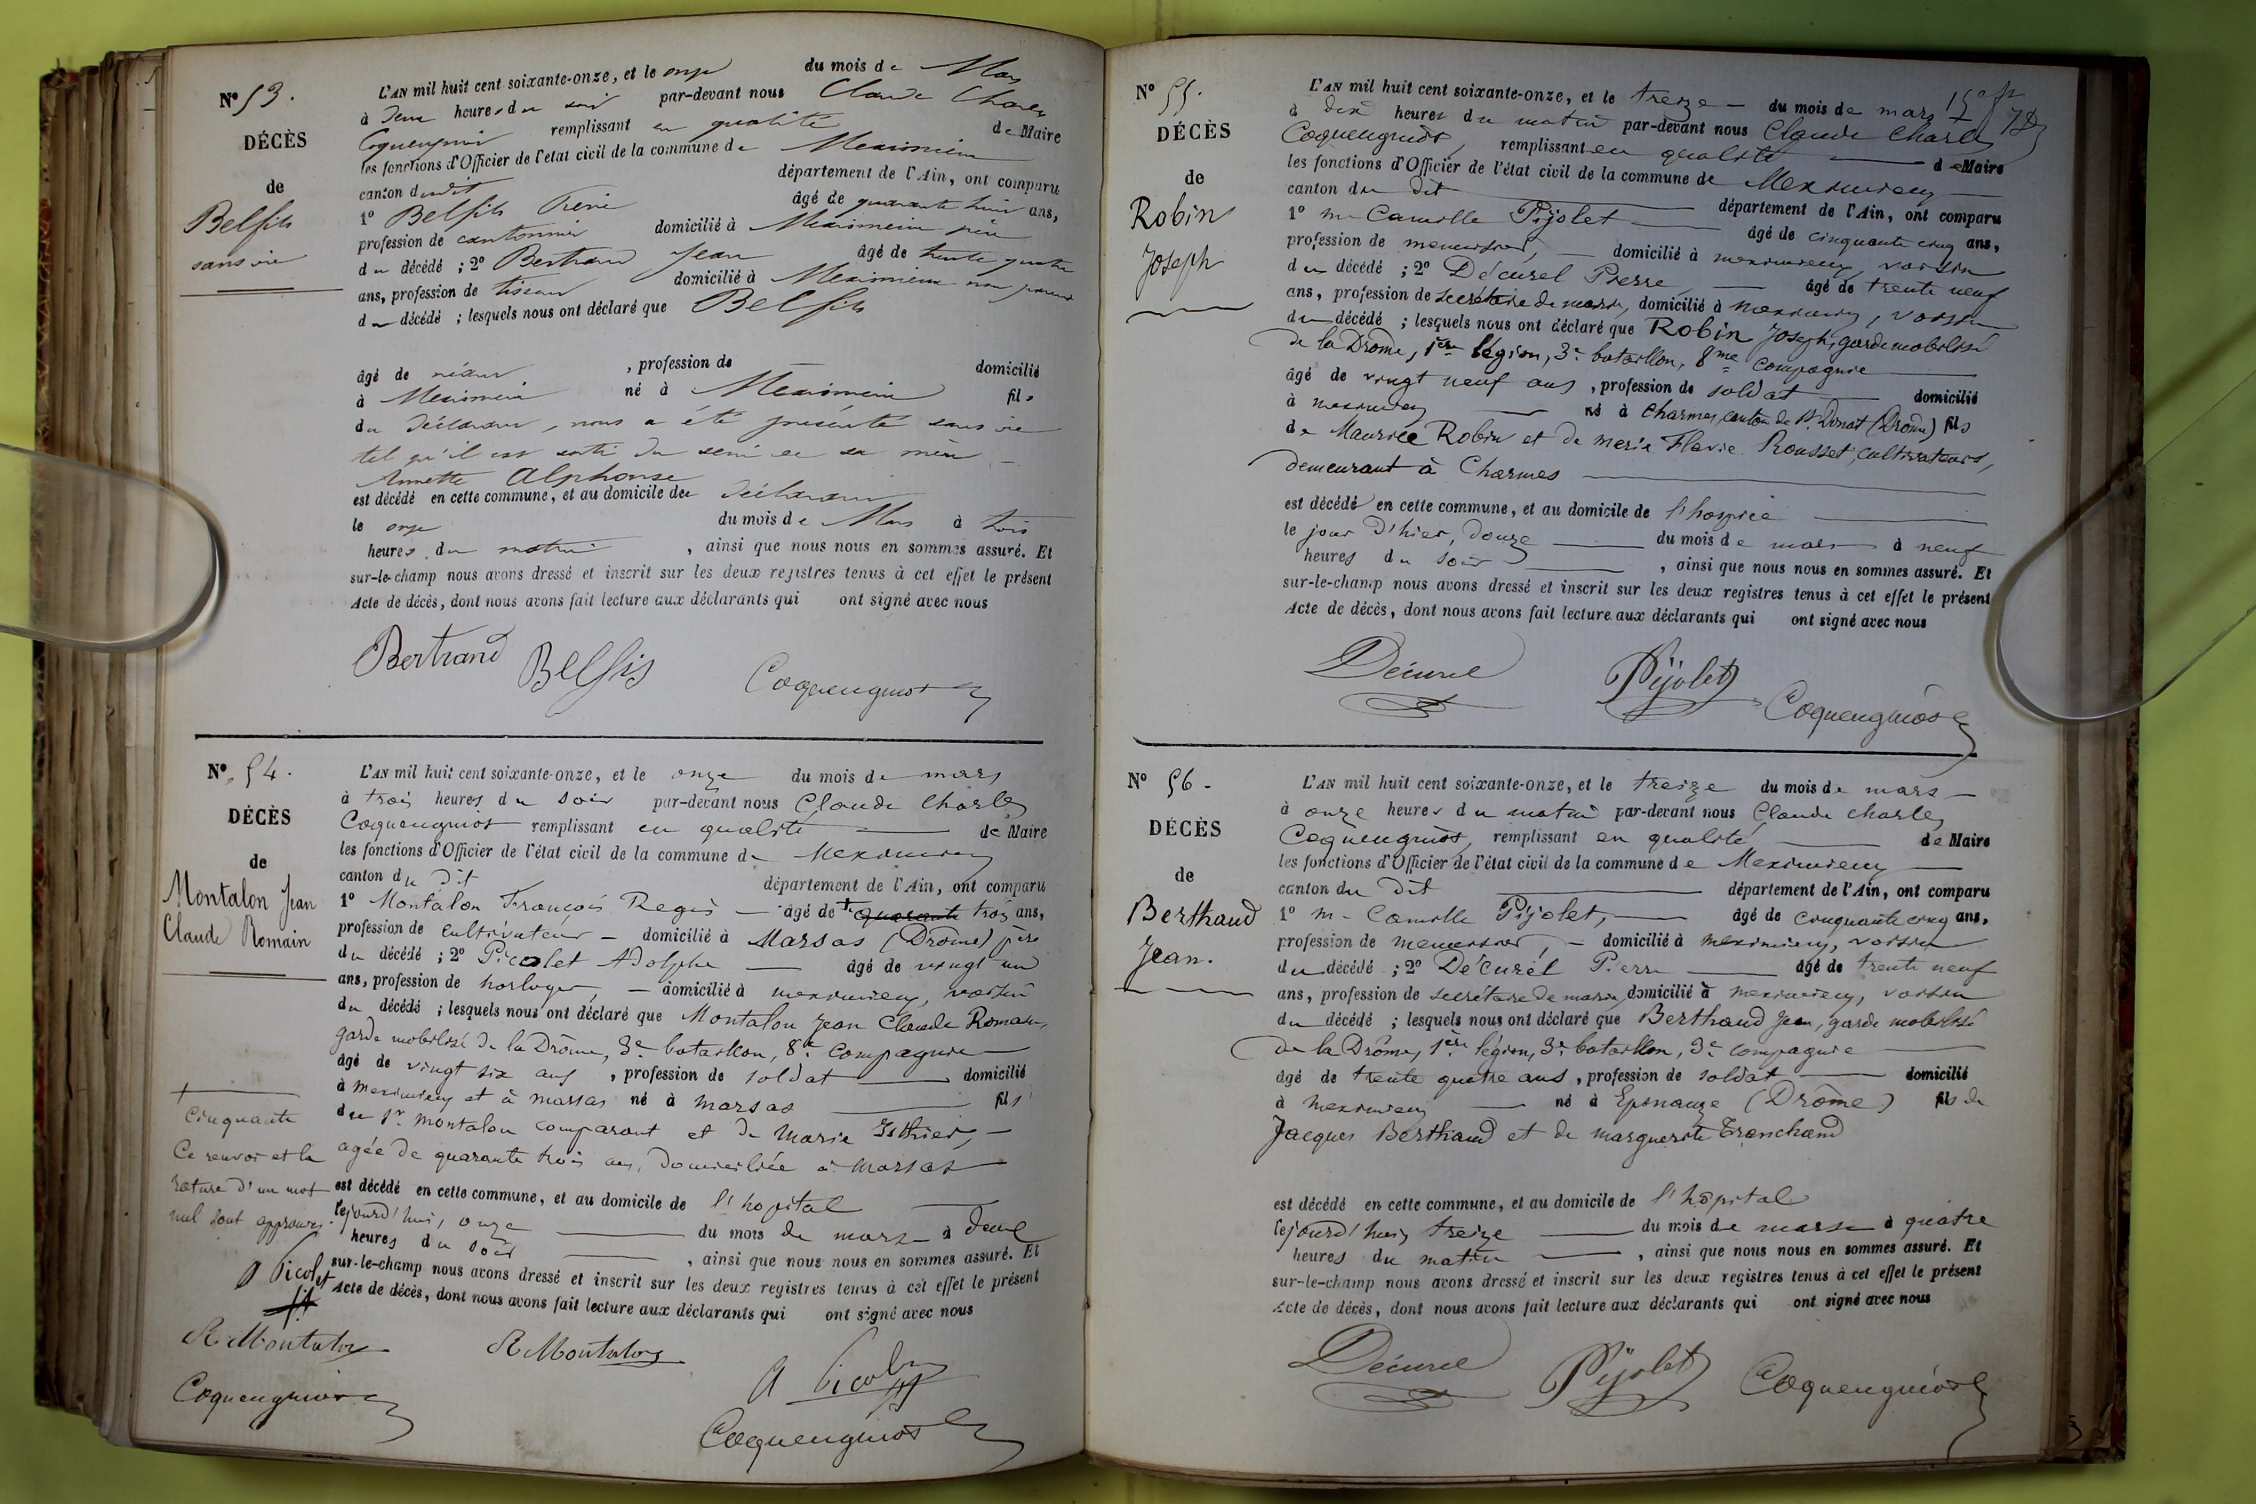 Nº 53.
DÉCÈS
de
Belfils
sans vie
L'AN mil huit cent soixante-onze, et le onze du mois de Mars
à deux heures du soir par-devant nous Claude Charles
Coquengniot remplissant en qualité de Maire
les fonctions d'Officier de l'état civil de la commune de Meximieux
canton dudit département de l'Ain, ont comparu
1º Belfils âgé de quarante huit ans,
profession de cantonnier domicilié à Meximieux père
du décédé ; 2º Bertrand Jean âgé de trente quatre
ans, profession de tisseur domicilié à Meximieux non parent
du décédé ; lesquels nous ont déclaré que Belfils
âgé de , profession de domicilié
à Meximieux né à Meximieux fils
du déclarant, nous a été présenté sans vie
tel qu'il est sorti du sein de sa mère
Annette Alphonse
est décédé en cette commune, et au domicile de déclarant
le onze du mois de Mars à trois
heures du matin , ainsi que nous nous en sommes assuré. Et
sur-le-champ nous avons dressé et inscrit sur les deux registres tenus à cet effet le présent
Acte de décès, dont nous avons fait lecture aux déclarants qui ont signé avec nous
Bertrand Belfis Coquengniot
Nº 54.
DÉCÈS
de
Montalon Jean
Claude Romain
L'AN mil huit cent soixante-onze, et le onze du mois de mars
à trois heures du soir par-devant nous Claude Charles
Coquengniot remplissant en qualité de Maire
les fonctions d'Officier de l'état civil de la commune de Meximieux
canton du dit département de l'Ain, ont comparu
1º Montalon François Regis âgé de quarante trois ans,
profession de cultivateur domicilié à Marsas (Drôme) père
du décédé ; 2º Picolet Adolphe âgé de vingt un
ans, profession de horloger, domicilié à meximieux, voisin
du décédé ; lesquels nous ont déclaré que Montalon Jean Claude Romain,
garde mobilisé de la Drôme, 3e bataillon, 8e compagnie
âgé de vingt six ans , profession de soldat domicilié
à meximieux et à marsas né à marsas fils
du Sr montalon comparant et de Marie Isthier,
agée de quarante trois ans, domiciliée à Marsas
est décédé en cette commune, et au domicile de l'hopital
lejourd'hui, onze du mois de mars à deux
heures du soir , ainsi que nous nous en sommes assuré. Et
sur-le-champ nous avons dressé et inscrit sur les deux registres tenus à cet effet le présent
Acte de décès, dont nous avons fait lecture aux déclarants qui ont signé avec nous
cinquante
Ce renvoi et la
rature d'un mot
nul sont approuvés.
A Picolet
R Montalon
Coquengniot
R Montalon
A Picolet
Coquengniot
Nº 55.
DÉCÈS
de
Robin
Joseph
L'AN mil huit cent soixante-onze, et le treize du mois de mars
à dix heures du matin par-devant nous Claude Charles
Coquengniot, remplissant en qualité de Maire
les fonctions d'Officier de l'état civil de la commune de Meximieux
canton du dit département de l'Ain, ont comparu
1º m Camille Pijolet âgé de cinquante cinq ans,
profession de menuisier, domicilié à meximieux, voisin
du décédé ; 2º Décurel Pierre, âgé de trente neuf
ans, profession de secrétaire de mairie, domicilié à meximieux, voisin
du décédé ; lesquels nous ont déclaré que Robin Joseph, garde mobilisé
de la Drôme, 1ère légion, 3e bataillon, 8me compagnie
âgé de vingt neuf ans , profession de soldat domicilié
à meximieux né à charmes, canton de St Donat (Drôme) fils
de Maurice Robin et de marie Flavie Rousset, cultivateurs,
demeurant à Charmes
est décédé en cette commune, et au domicile de l'hospice
le jour d'hier, douze du mois de mars à neuf
heures du soir , ainsi que nous nous en sommes assuré. Et
sur-le-champ nous avons dressé et inscrit sur les deux registres tenus à cet effet le présent
Acte de décès, dont nous avons fait lecture aux déclarants qui ont signé avec nous
Décurel Pijolet Coquengniot
Nº 56.
DÉCÈS
de
Berthaud
Jean.
L'AN mil huit cent soixante-onze, et le treize du mois de mars
à onze heures du matin par-devant nous Claude Charles
Coquengniot, remplissant en qualité de Maire
les fonctions d'Officier de l'état civil de la commune de Meximieux
canton du dit département de l'Ain, ont comparu
1º m Camille Pijolet, âgé de cinquante cinq ans,
profession de menuisier, domicilié à meximieux, voisin
du décédé ; 2º Décurel Pierre âgé de trente neuf
ans, profession de secrétaire de mairie, domicilié à meximieux, voisin
du décédé ; lesquels nous ont déclaré que Berthaud Jean, garde mobilisé
de la Drôme, 1ère légion, 3e bataillon, 3e compagnie
âgé de trente quatre ans , profession de soldat domicilié
à meximieux né à Eponauze (Drôme) fils de
Jacques Berthaud et de marguerite Tranchand
est décédé en cette commune, et au domicile de l'hôpital
lejourd'hui, treize du mois de mars à quatre
heures du matin , ainsi que nous nous en sommes assuré. Et
sur-le-champ nous avons dressé et inscrit sur les deux registres tenus à cet effet le présent
Acte de décès, dont nous avons fait lecture aux déclarants qui ont signé avec nous
Décurel Pijolet Coquengniot